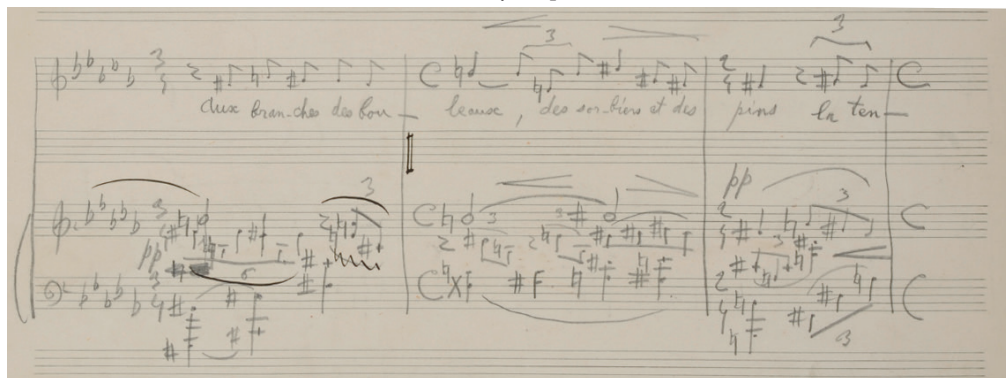 3
3
Aux bran-ches des bou- leaux, des sor-biers et des pins la ten-
3
pp
3
3
3
3
pp
6
3
3